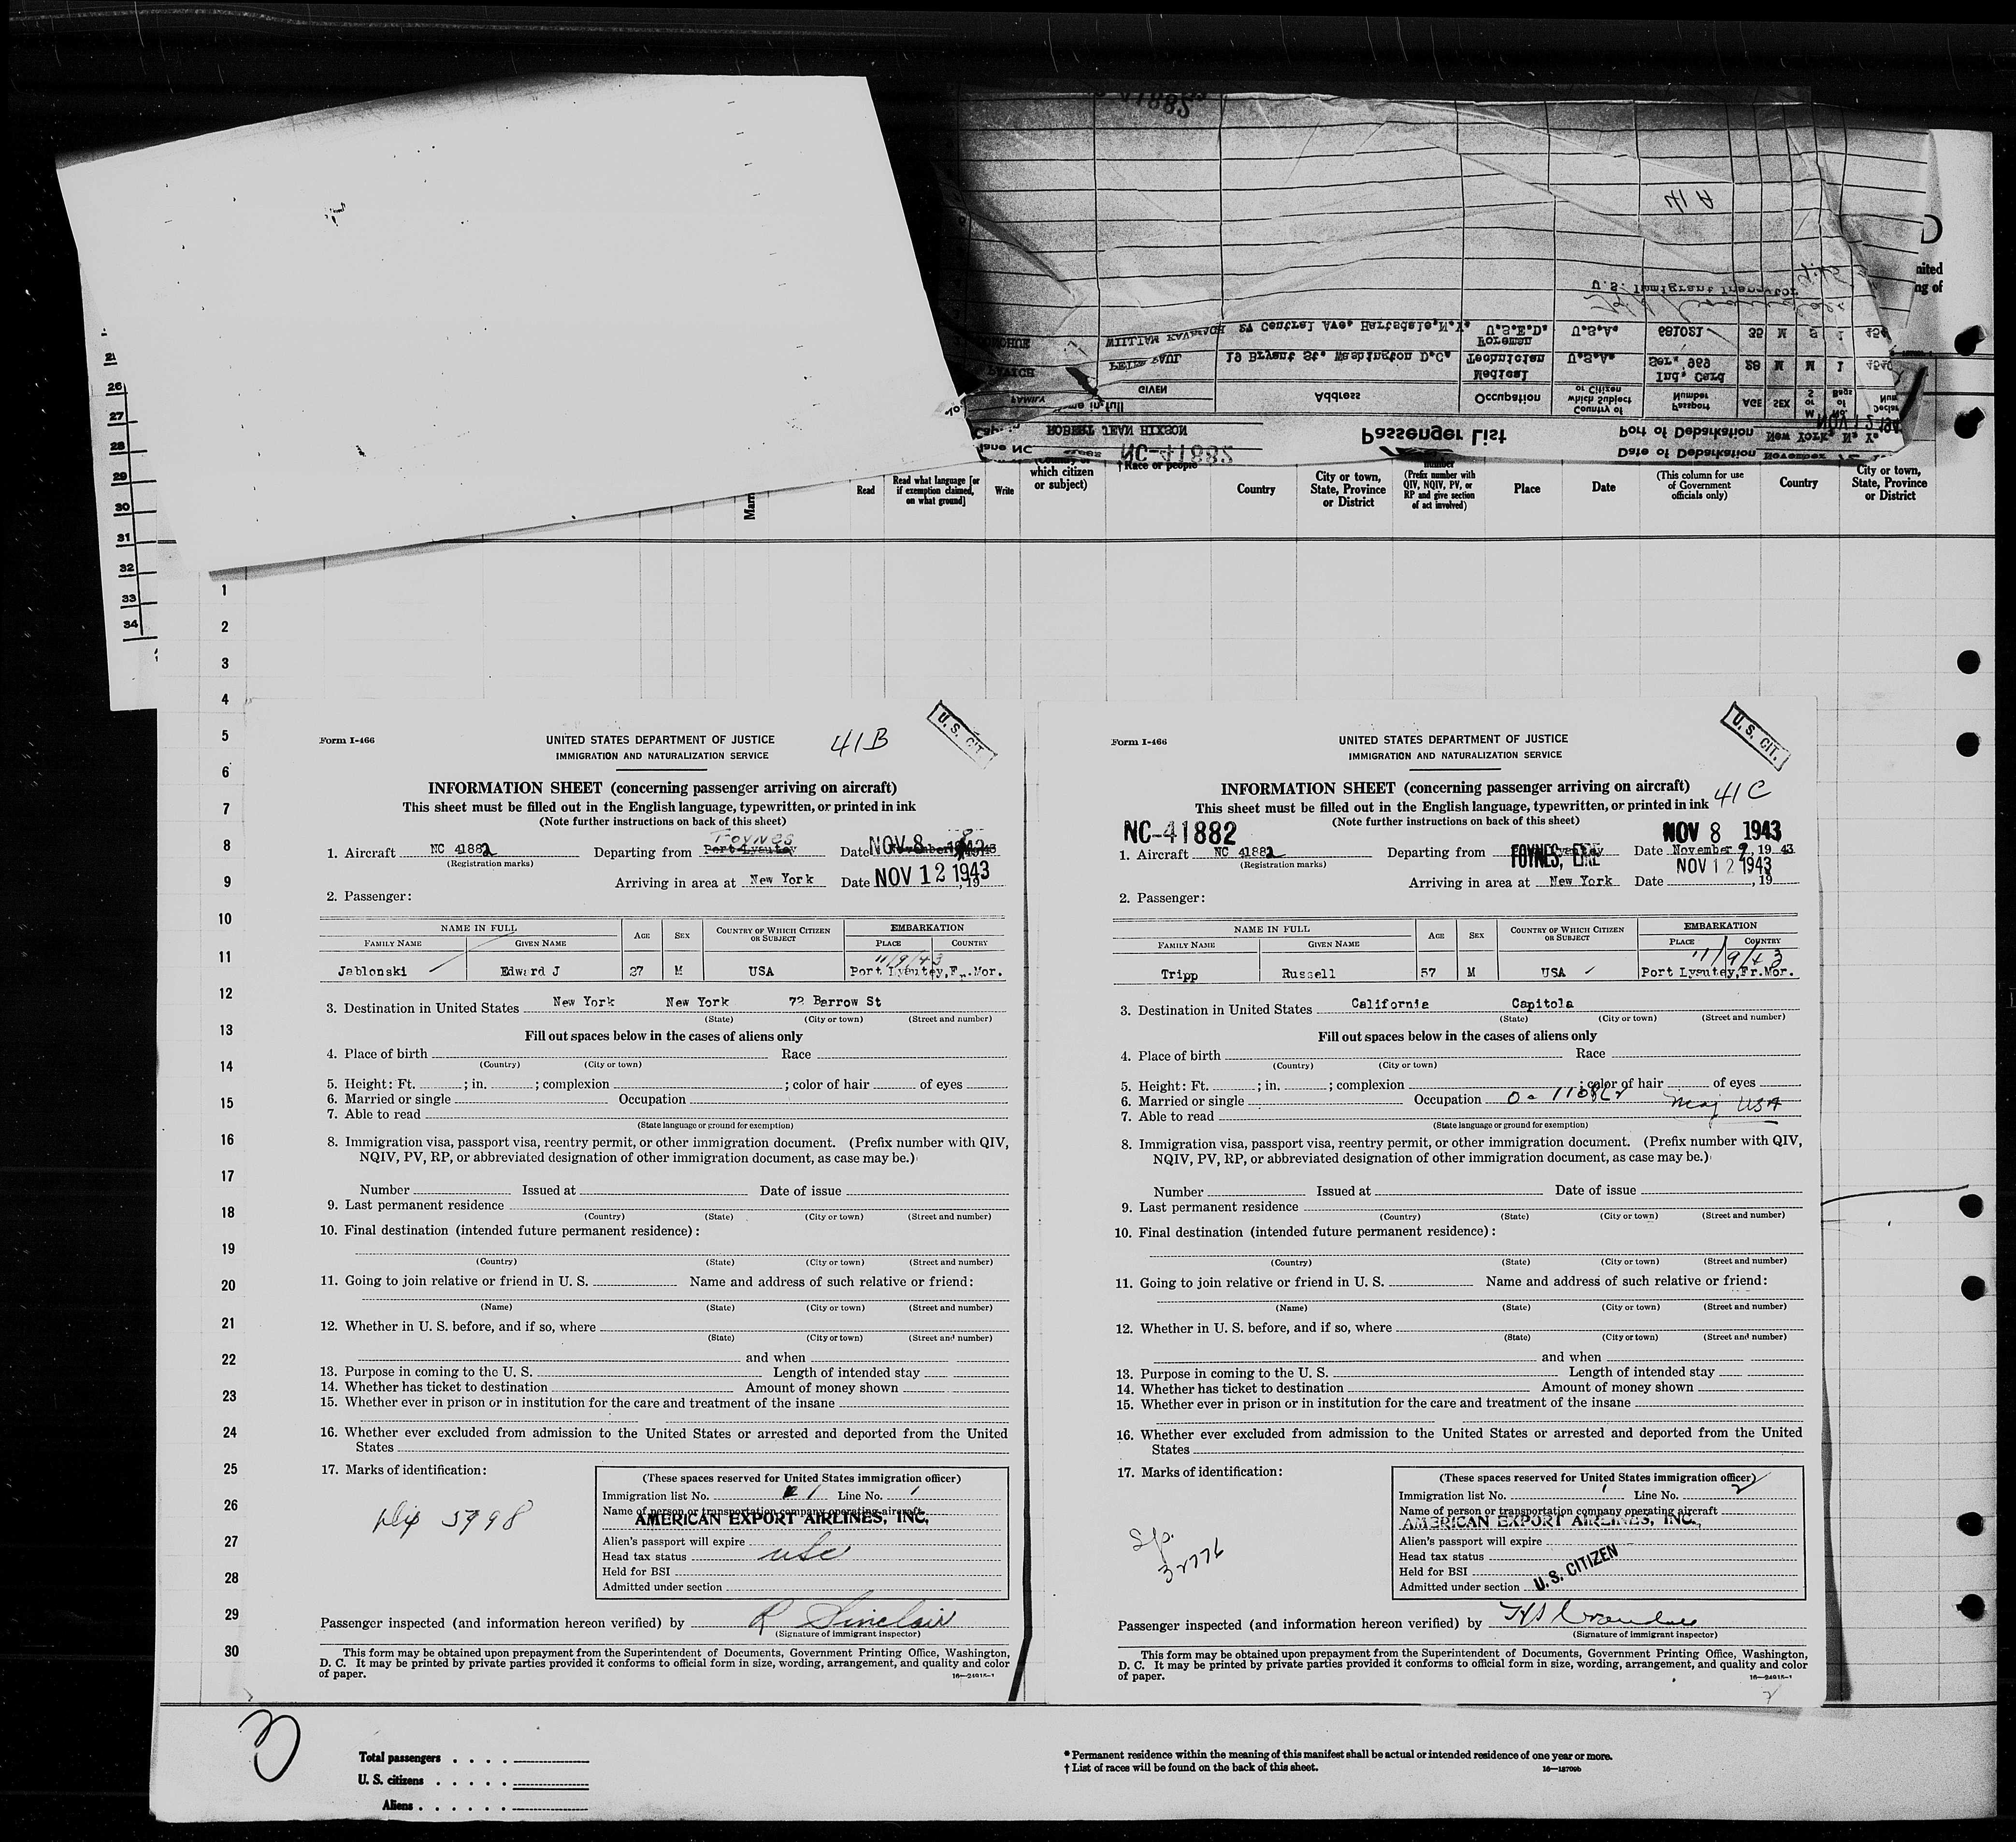 41882
41 A
U.S. Immigrant Inspector
WILLIAM KAVANAGH 27 Central Ave. Hartsdale, N.Y. U.S.E.D. Foreman U.S.A. 681021 35 M S 1
PAUL 19 Bryant St. Washington D.C. Medical Technician U.S.A. Ind. Card Ser. 969 28 M M 1 4540
FAMILY GIVEN Address Occupation Country of which Subject or Citizen Passport Number AGE SEX
ROBERT JEAN HIXSON
Passenger List
Port of Debarkation New York, N. Y.
NC-41882
Date of Debarkation November 12
26
27
28
29
30
31
32
33
34
Read
Read what language [or if exemption claimed, on what ground]
Write
which citizen or subject)
† Race or people
Country
City or town, State, Province or District
number (Prefix number with QIV, NQIV, PV, or RP and give section of act involved)
Place
Date
(This column for use of Government officials only)
Country
City or town, State, Province or District
1
2
3
4
5
6
7
8
9
10
11
12
13
14
15
16
17
18
19
20
21
22
23
24
25
26
27
28
29
30
Form I-466
UNITED STATES DEPARTMENT OF JUSTICE
41B
U. S. CIT.
IMMIGRATION AND NATURALIZATION SERVICE
INFORMATION SHEET (concerning passenger arriving on aircraft)
This sheet must be filled out in the English language, typewritten, or printed in ink
(Note further instructions on back of this sheet)
FOYNES
NOV 8 1943
1. Aircraft NC 41882 Departing from Port Lyautey Date November 1943
(Registration marks)
Arriving in area at New York Date NOV 12 1943, 19
2. Passenger:
NAME IN FULL AGE SEX COUNTRY OF WHICH CITIZEN OR SUBJECT EMBARKATION
FAMILY NAME GIVEN NAME PLACE COUNTRY
11/9/43
Jablonski Edward J 27 M USA Port Lyautey, Fr. Mor.
3. Destination in United States New York New York 72 Barrow St
(State) (City or town) (Street and number)
Fill out spaces below in the cases of aliens only
4. Place of birth Race
(Country) (City or town)
5. Height: Ft. ; in. ; complexion ; color of hair of eyes
6. Married or single Occupation
7. Able to read
(State language or ground for exemption)
8. Immigration visa, passport visa, reentry permit, or other immigration document. (Prefix number with QIV,
NQIV, PV, RP, or abbreviated designation of other immigration document, as case may be.)
Number Issued at Date of issue
9. Last permanent residence
(Country) (State) (City or town) (Street and number)
10. Final destination (intended future permanent residence):
(Country) (State) (City or town) (Street and number)
11. Going to join relative or friend in U. S. Name and address of such relative or friend:
(Name) (State) (City or town) (Street and number)
12. Whether in U. S. before, and if so, where
(State) (City or town) (Street and number)
and when
13. Purpose in coming to the U. S. Length of intended stay
14. Whether has ticket to destination Amount of money shown
15. Whether ever in prison or in institution for the care and treatment of the insane
16. Whether ever excluded from admission to the United States or arrested and deported from the United
States
17. Marks of identification:
Dip 5998
(These spaces reserved for United States immigration officer)
Immigration list No. 1 Line No. 1
Name of person or transportation company operating aircraft
AMERICAN EXPORT AIRLINES, INC.
Alien's passport will expire
Head tax status usc
Held for BSI
Admitted under section
Passenger inspected (and information hereon verified) by R Sinclair
(Signature of immigrant inspector)
This form may be obtained upon prepayment from the Superintendent of Documents, Government Printing Office, Washington,
D. C. It may be printed by private parties provided it conforms to official form in size, wording, arrangement, and quality and color
of paper.
Form I-466
UNITED STATES DEPARTMENT OF JUSTICE
U. S. CIT.
IMMIGRATION AND NATURALIZATION SERVICE
INFORMATION SHEET (concerning passenger arriving on aircraft)
41C
This sheet must be filled out in the English language, typewritten, or printed in ink
(Note further instructions on back of this sheet)
NC-41882
NOV 8 1943
1. Aircraft NC 41882 Departing from FOYNES, EIRE Date November 9, 1943
(Registration marks)
Arriving in area at New York Date NOV 12 1943, 19
2. Passenger:
NAME IN FULL AGE SEX COUNTRY OF WHICH CITIZEN OR SUBJECT EMBARKATION
FAMILY NAME GIVEN NAME PLACE COUNTRY
11/9/43
Tripp Russell 57 M USA Port Lyautey, Fr. Mor.
3. Destination in United States California Capitola
(State) (City or town) (Street and number)
Fill out spaces below in the cases of aliens only
4. Place of birth Race
(Country) (City or town)
5. Height: Ft. ; in. ; complexion ; color of hair of eyes
6. Married or single Occupation Maj USA
7. Able to read
(State language or ground for exemption)
8. Immigration visa, passport visa, reentry permit, or other immigration document. (Prefix number with QIV,
NQIV, PV, RP, or abbreviated designation of other immigration document, as case may be.)
Number Issued at Date of issue
9. Last permanent residence
(Country) (State) (City or town) (Street and number)
10. Final destination (intended future permanent residence):
(Country) (State) (City or town) (Street and number)
11. Going to join relative or friend in U. S. Name and address of such relative or friend:
(Name) (State) (City or town) (Street and number)
12. Whether in U. S. before, and if so, where
(State) (City or town) (Street and number)
and when
13. Purpose in coming to the U. S. Length of intended stay
14. Whether has ticket to destination Amount of money shown
15. Whether ever in prison or in institution for the care and treatment of the insane
16. Whether ever excluded from admission to the United States or arrested and deported from the United
States
17. Marks of identification:
Sp.
32776
(These spaces reserved for United States immigration officer)
Immigration list No. 1 Line No. 2
Name of person or transportation company operating aircraft
AMERICAN EXPORT AIRLINES, INC.,
Alien's passport will expire
Head tax status
Held for BSI
Admitted under section U. S. CITIZEN
Passenger inspected (and information hereon verified) by
(Signature of immigrant inspector)
This form may be obtained upon prepayment from the Superintendent of Documents, Government Printing Office, Washington,
D. C. It may be printed by private parties provided it conforms to official form in size, wording, arrangement, and quality and color
of paper.
3
Total passengers . . . .
U. S. citizens . . . . .
Aliens . . . . . .
* Permanent residence within the meaning of this manifest shall be actual or intended residence of one year or more.
† List of races will be found on the back of this sheet.
16—18709b